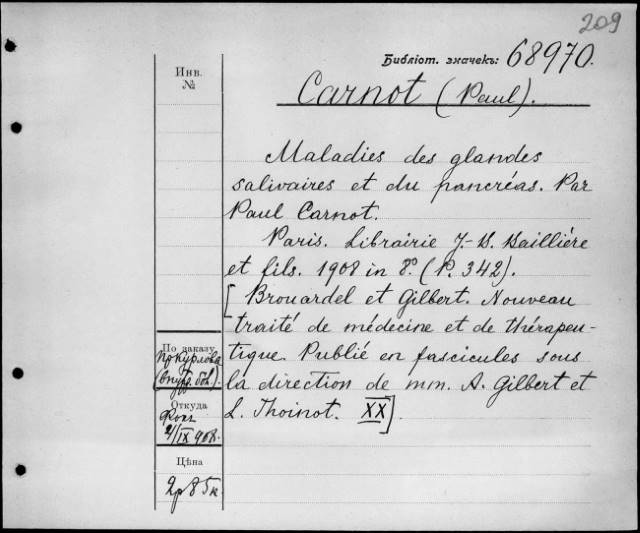 209
Библіот. значекъ: 68970.
Инв.
№
Carnot (Paul).
Maladies des glandes
salivaires et du pancréas. Par
Paul Carnot.
Paris. Librairie J.-B. Baillière
et fils. 1908 in 8º. (P. 342).
[Brouardel et Gilbert. Nouveau
traité de médecine et de thérapeu-
tique. Publié en fascicules sous
la direction de mm. A. Gilbert et
L. Thoinot. XX].
По заказу
Покурлова
(внутр. бол).
Откуда
Фокъ
2/IX 908.
Цѣна
2р 85к.